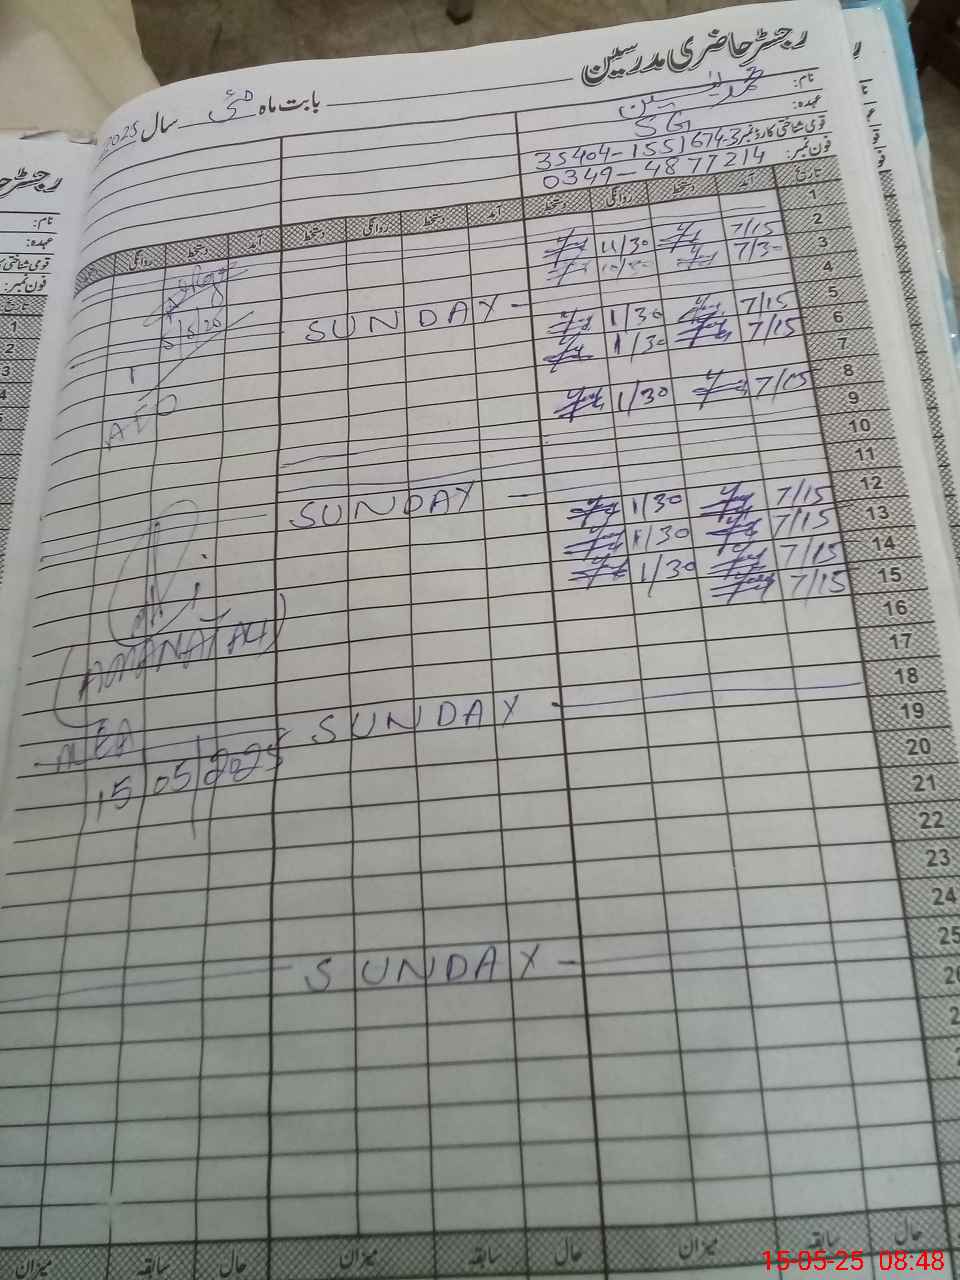 رجسٹر حاضری مدرسین
بابت ماہ مئی سال 2025
نام:
عہدہ: SG
قومی شناختی کارڈ نمبر: 35404-1551674-3
فون نمبر: 0349-4877214
تاریخ آمد دستخط روانگی دستخط آمد دستخط روانگی دستخط آمد دستخط روانگی
1
2 7/15 11/30
3 7/30
4 SUNDAY -
5 7/15 1/30
6 7/15 1/30
7
8 7/15 1/30
9
10
11 SUNDAY -
12 7/15 1/30
13 7/15 1/30
14 7/15 1/30
15 7/15
16
17
18 SUNDAY -
19
20
21
22
23
24
25 SUNDAY -
AEO
(AMANAT ALI)
MEA
15/05/2025
حال سابقہ میزان حال سابقہ میزان حال سابقہ میزان
رجسٹر
نام:
عہدہ:
فون نمبر:
تاریخ
1
2
3
4
15-05-25 08:48